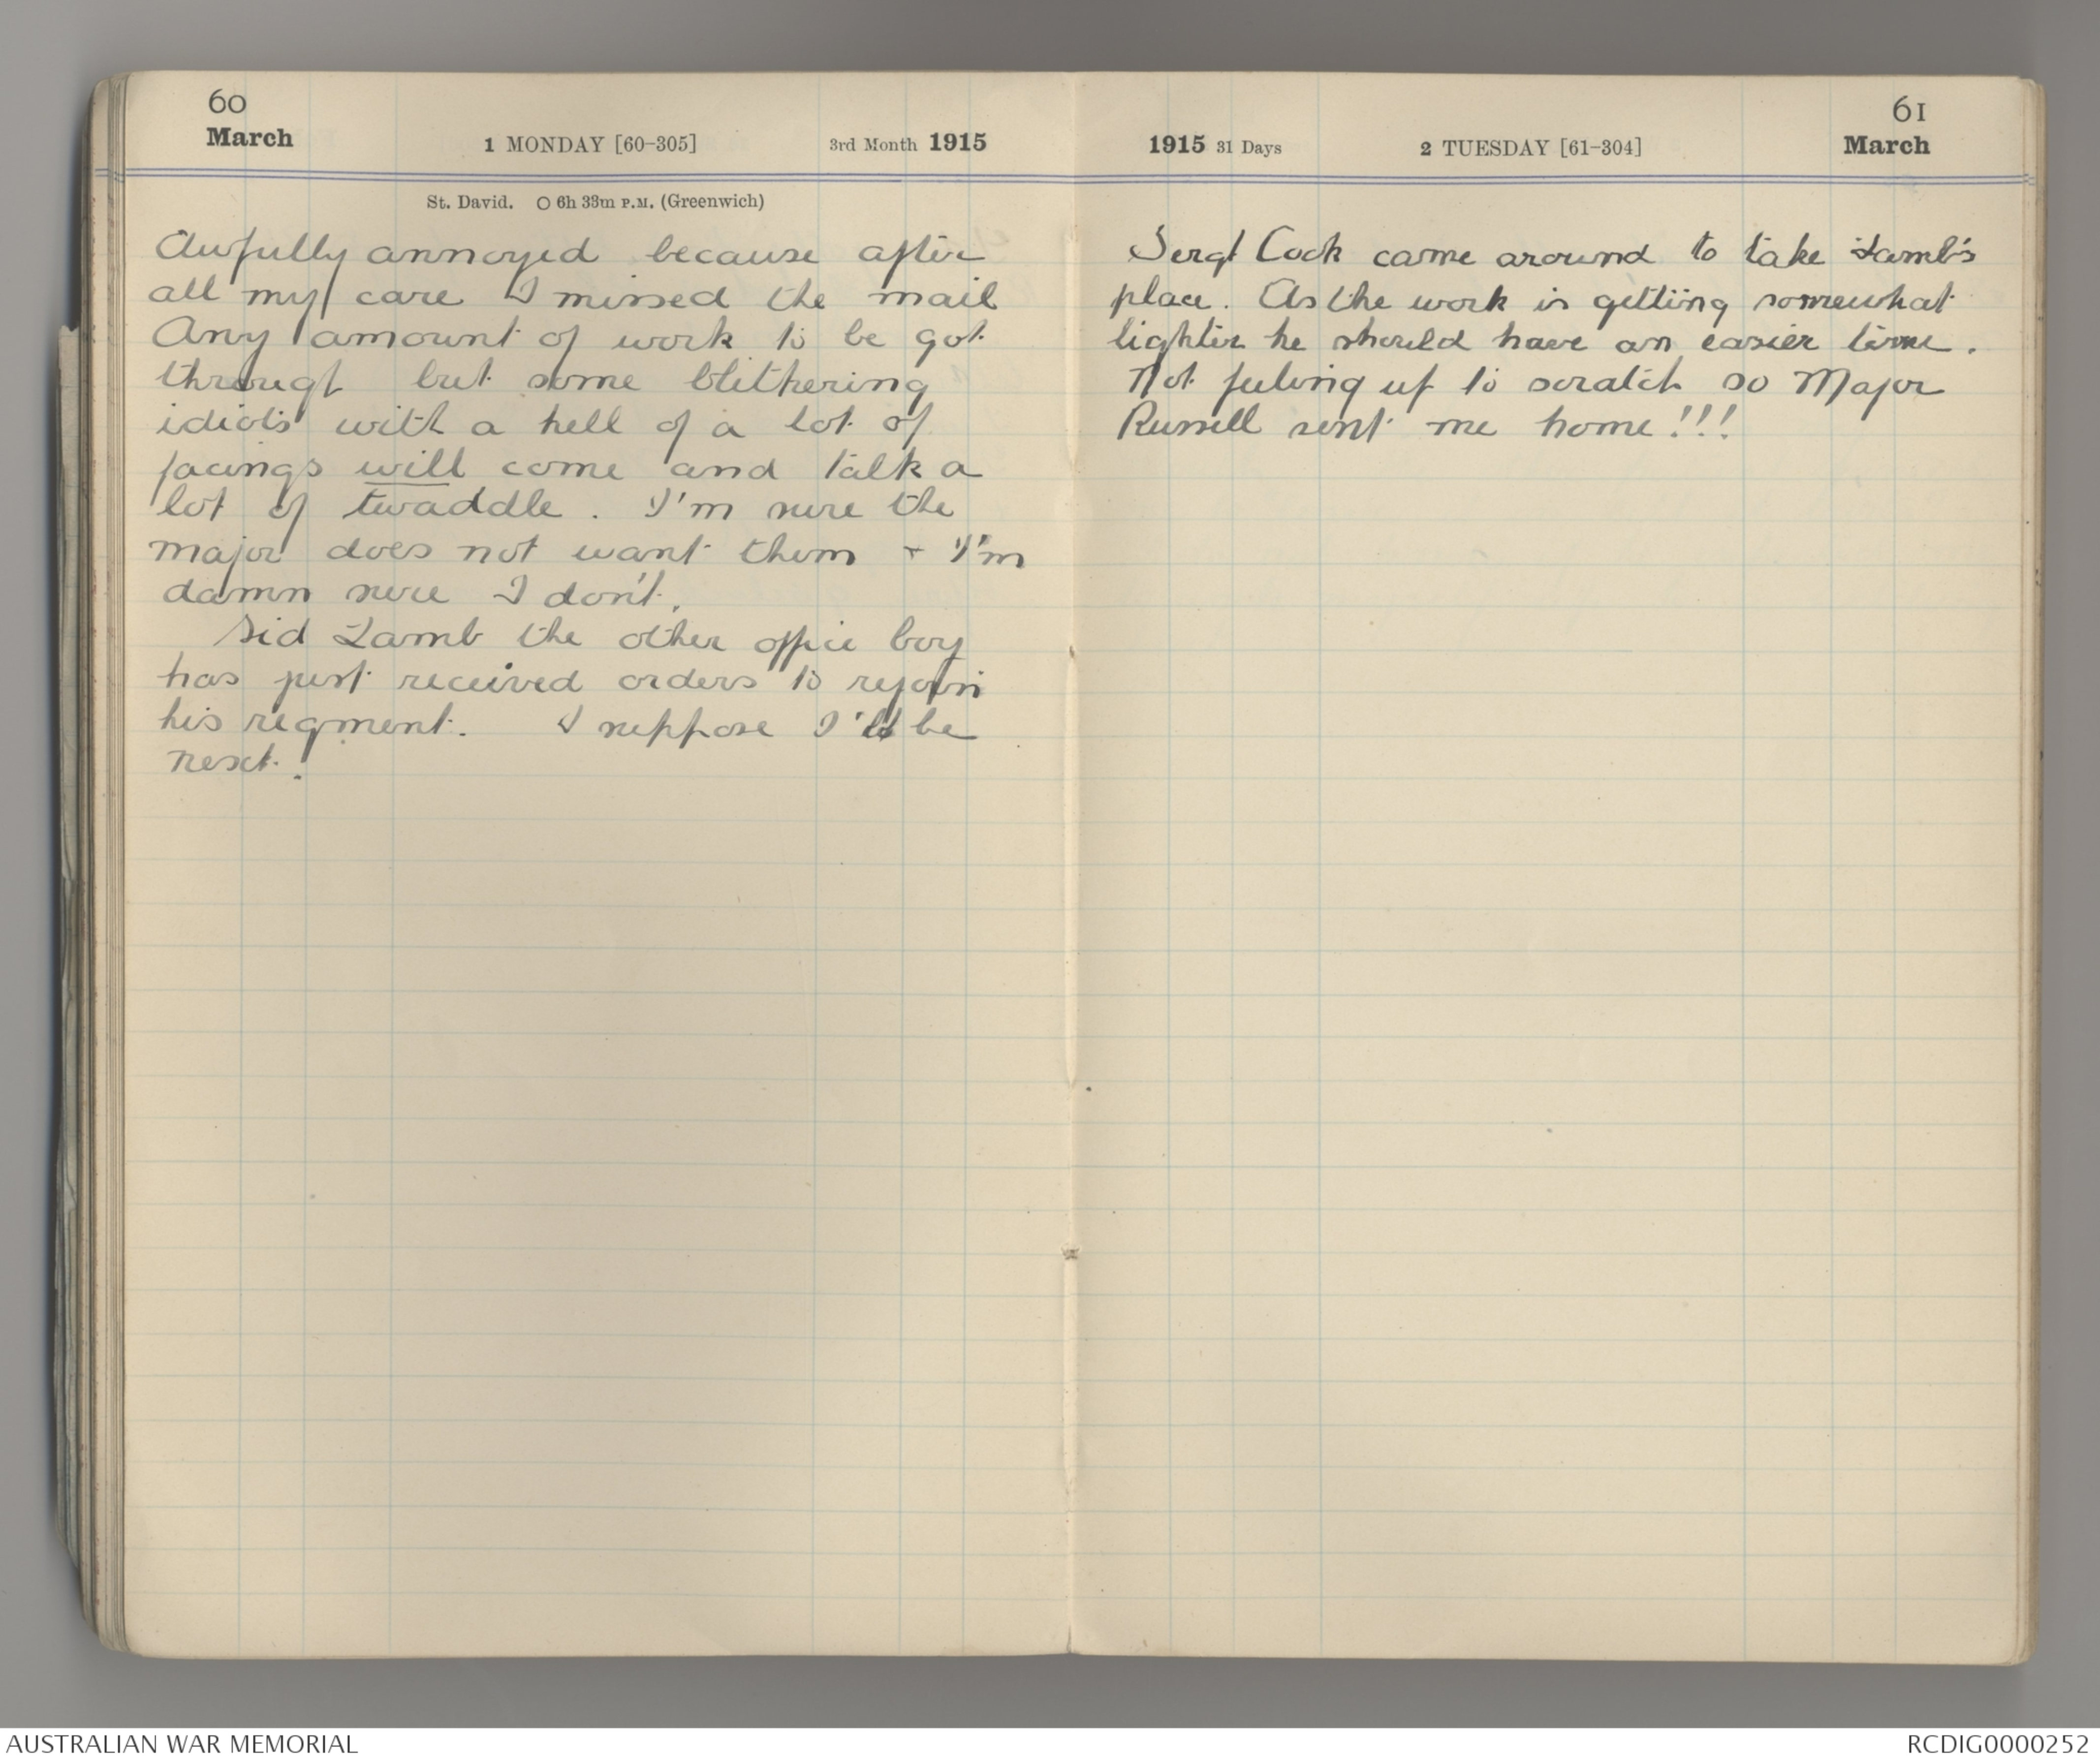 60
March
1 MONDAY [60-305]
3rd Month 1915
St. David. O 6h 33m P.M. (Greenwich)
Awfully annoyed because after
all my care I missed the mail
Any amount of work to be got
through but some blithering
idiots with a hell of a lot of
facings will come and talk a
lot of twaddle. I'm sure the
major does not want them + I'm
damn sure I don't.
Sid Lamb the other office boy
has just received orders to rejoin
his regment. I suppose I'll be
next.
61
March
1915 31 Days
2 TUESDAY [61-304]
Sergt Cook came around to take Lamb's
place. As the work is getting somewhat
lighter he should have an easier time.
Not feeling up to scratch so Major
Russell sent me home!!!
AUSTRALIAN WAR MEMORIAL
RCDIG0000252